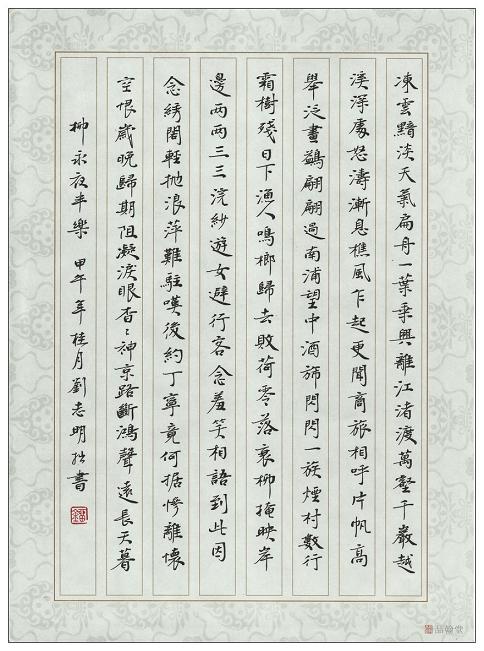 凍雲黯淡天氣扁舟一葉乘興離江渚渡萬壑千巖越
溪深處怒濤漸息樵風乍起更聞商旅相呼片帆高
舉泛畫鷁翩翩過南浦望中酒旆閃閃一簇煙村數行
霜樹殘日下漁人鳴榔歸去敗荷零落衰柳掩映岸
邊兩兩三三浣紗遊女避行客含羞笑相語到此因
念綉閣輕拋浪萍難駐嘆後約丁寧竟何據慘離懷
空恨歲晚歸期阻凝淚眼杳杳神京路斷鴻聲遠長天暮
柳永夜半樂 甲午年桂月劉志明拙書
品翰堂